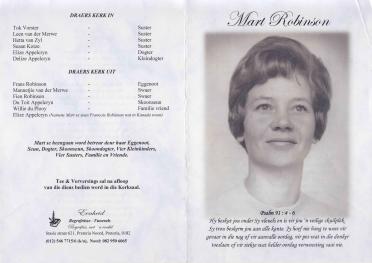 DRAERS KERK IN
Tok Vorster - Suster
Leen van der Merwe - Suster
Hetta van Zyl - Suster
Susan Kotze - Suster
Elize Appelcryn - Dogter
Delize Appelcryn - Kleindogter
DRAERS KERK UIT
Frans Robinson - Eggenoot
Mannetjie van der Merwe - Swaer
Fien Robinson - Swaer
Du Toit Appelcryn - Skoonseun
Willie du Plooy - Familie vriend
Elize Appelcryn (Namens Mart se seun Francois Robinson wat in Kanada woon)
Mart se heengaan word betreur deur haar Eggenoot,
Seun, Dogter, Skoonseun, Skoondogter, Vier Kleinkinders,
Vier Susters, Familie en Vriende.
Tee & Verversings sal na afloop
van die diens bedien word in die Kerksaal.
Eenheid
Begrafnisse - Funerals
Pretoria Noord, Pretoria, 0182
Mart Robinson
Psalm 91 : 4 - 6
Hy beskut jou onder Sy vleuels en is vir jou 'n veilige skuilplek,
Sy trou beskerm jou aan alle kante. Jy hoef nie bang te wees vir
gevaar in die nag of vir aanvalle oordag, vir pes wat in die donker
toeslaan of vir siekte wat helder oordag verwoesting saai nie.